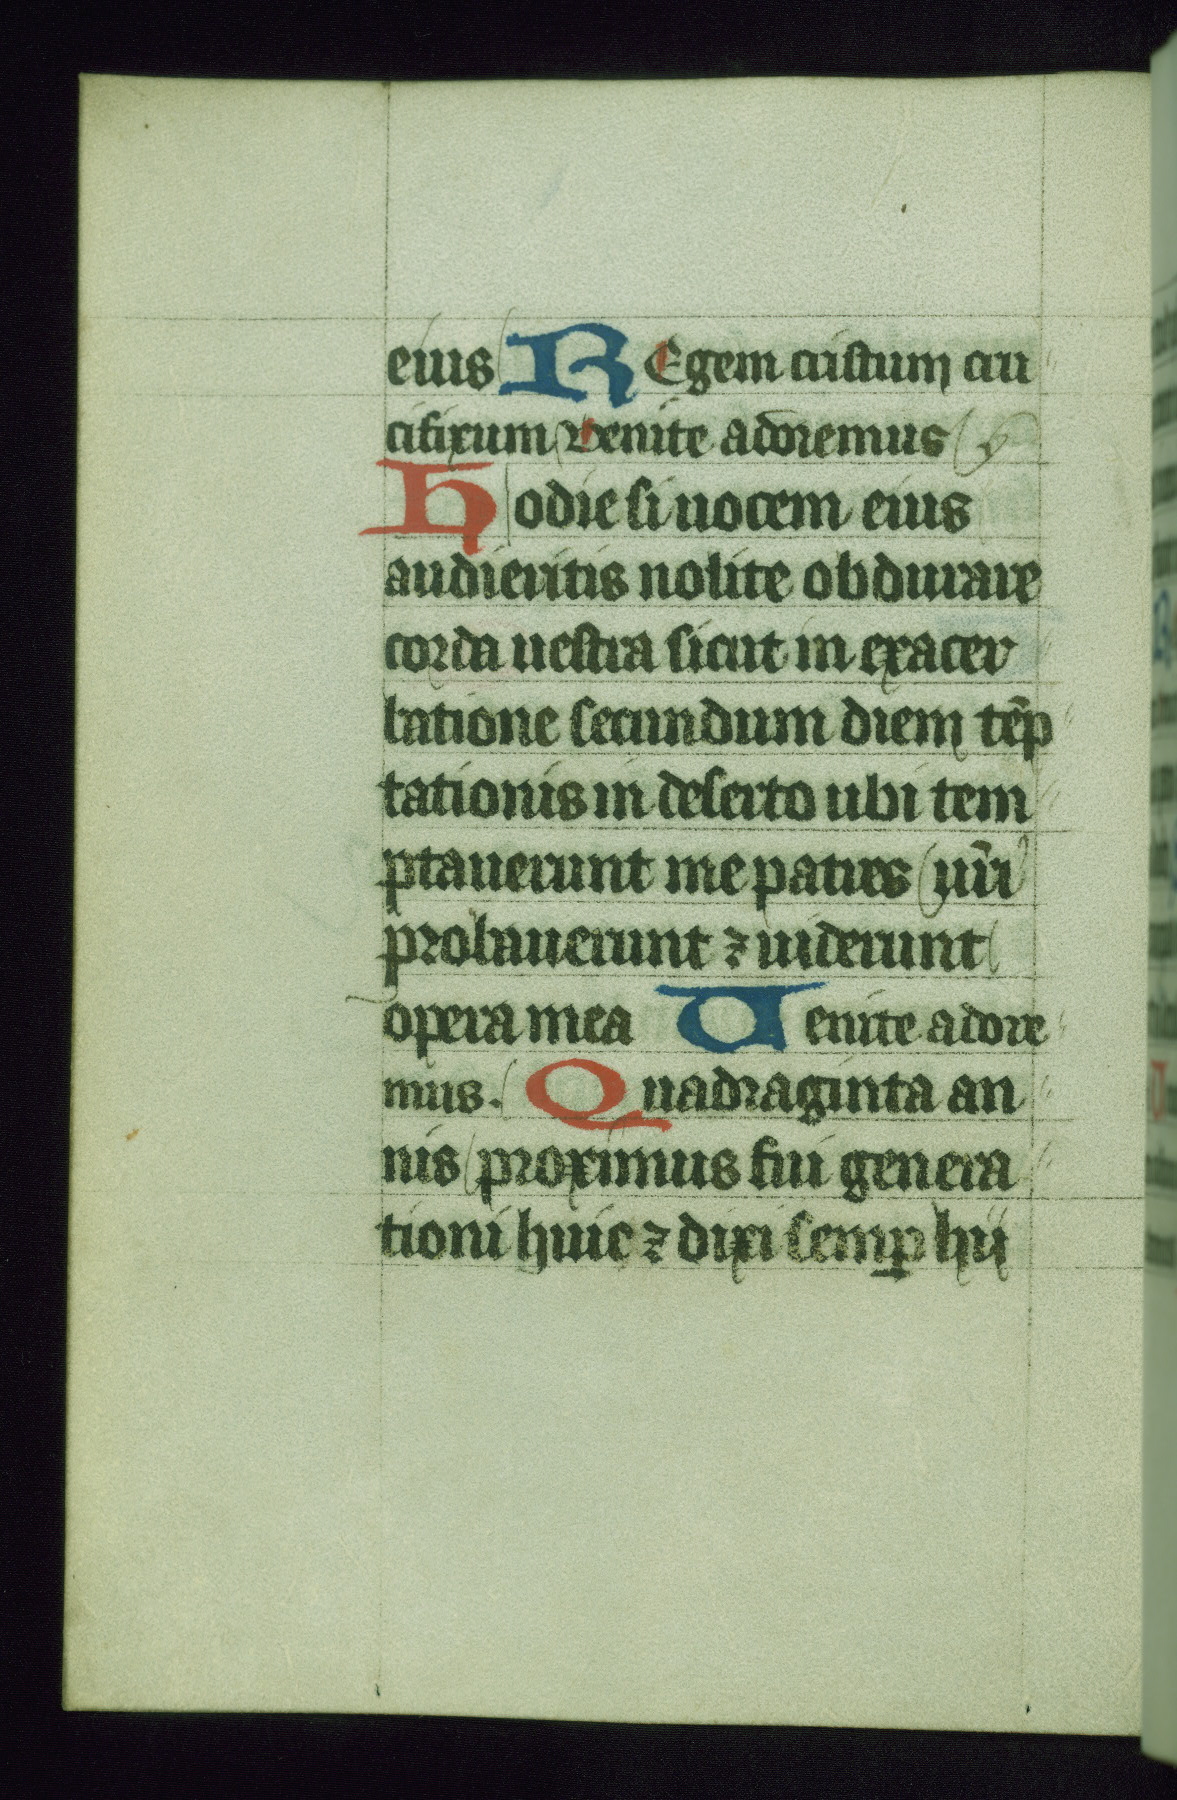 eius REgem cristum cru
cifixum venite adoremus
Hodie si uocem eius
audieritis nolite obdurare
corda uestra sicut in exacer
batione secundum diem tēp
tationis in deserto ubi tem
ptauerunt me patres ur̄i
probauerunt ⁊ uiderunt
opera mea Uenite adore
mus. Quadraginta an
nis proximus fui genera
tioni huic ⁊ dixi semꝑ hii